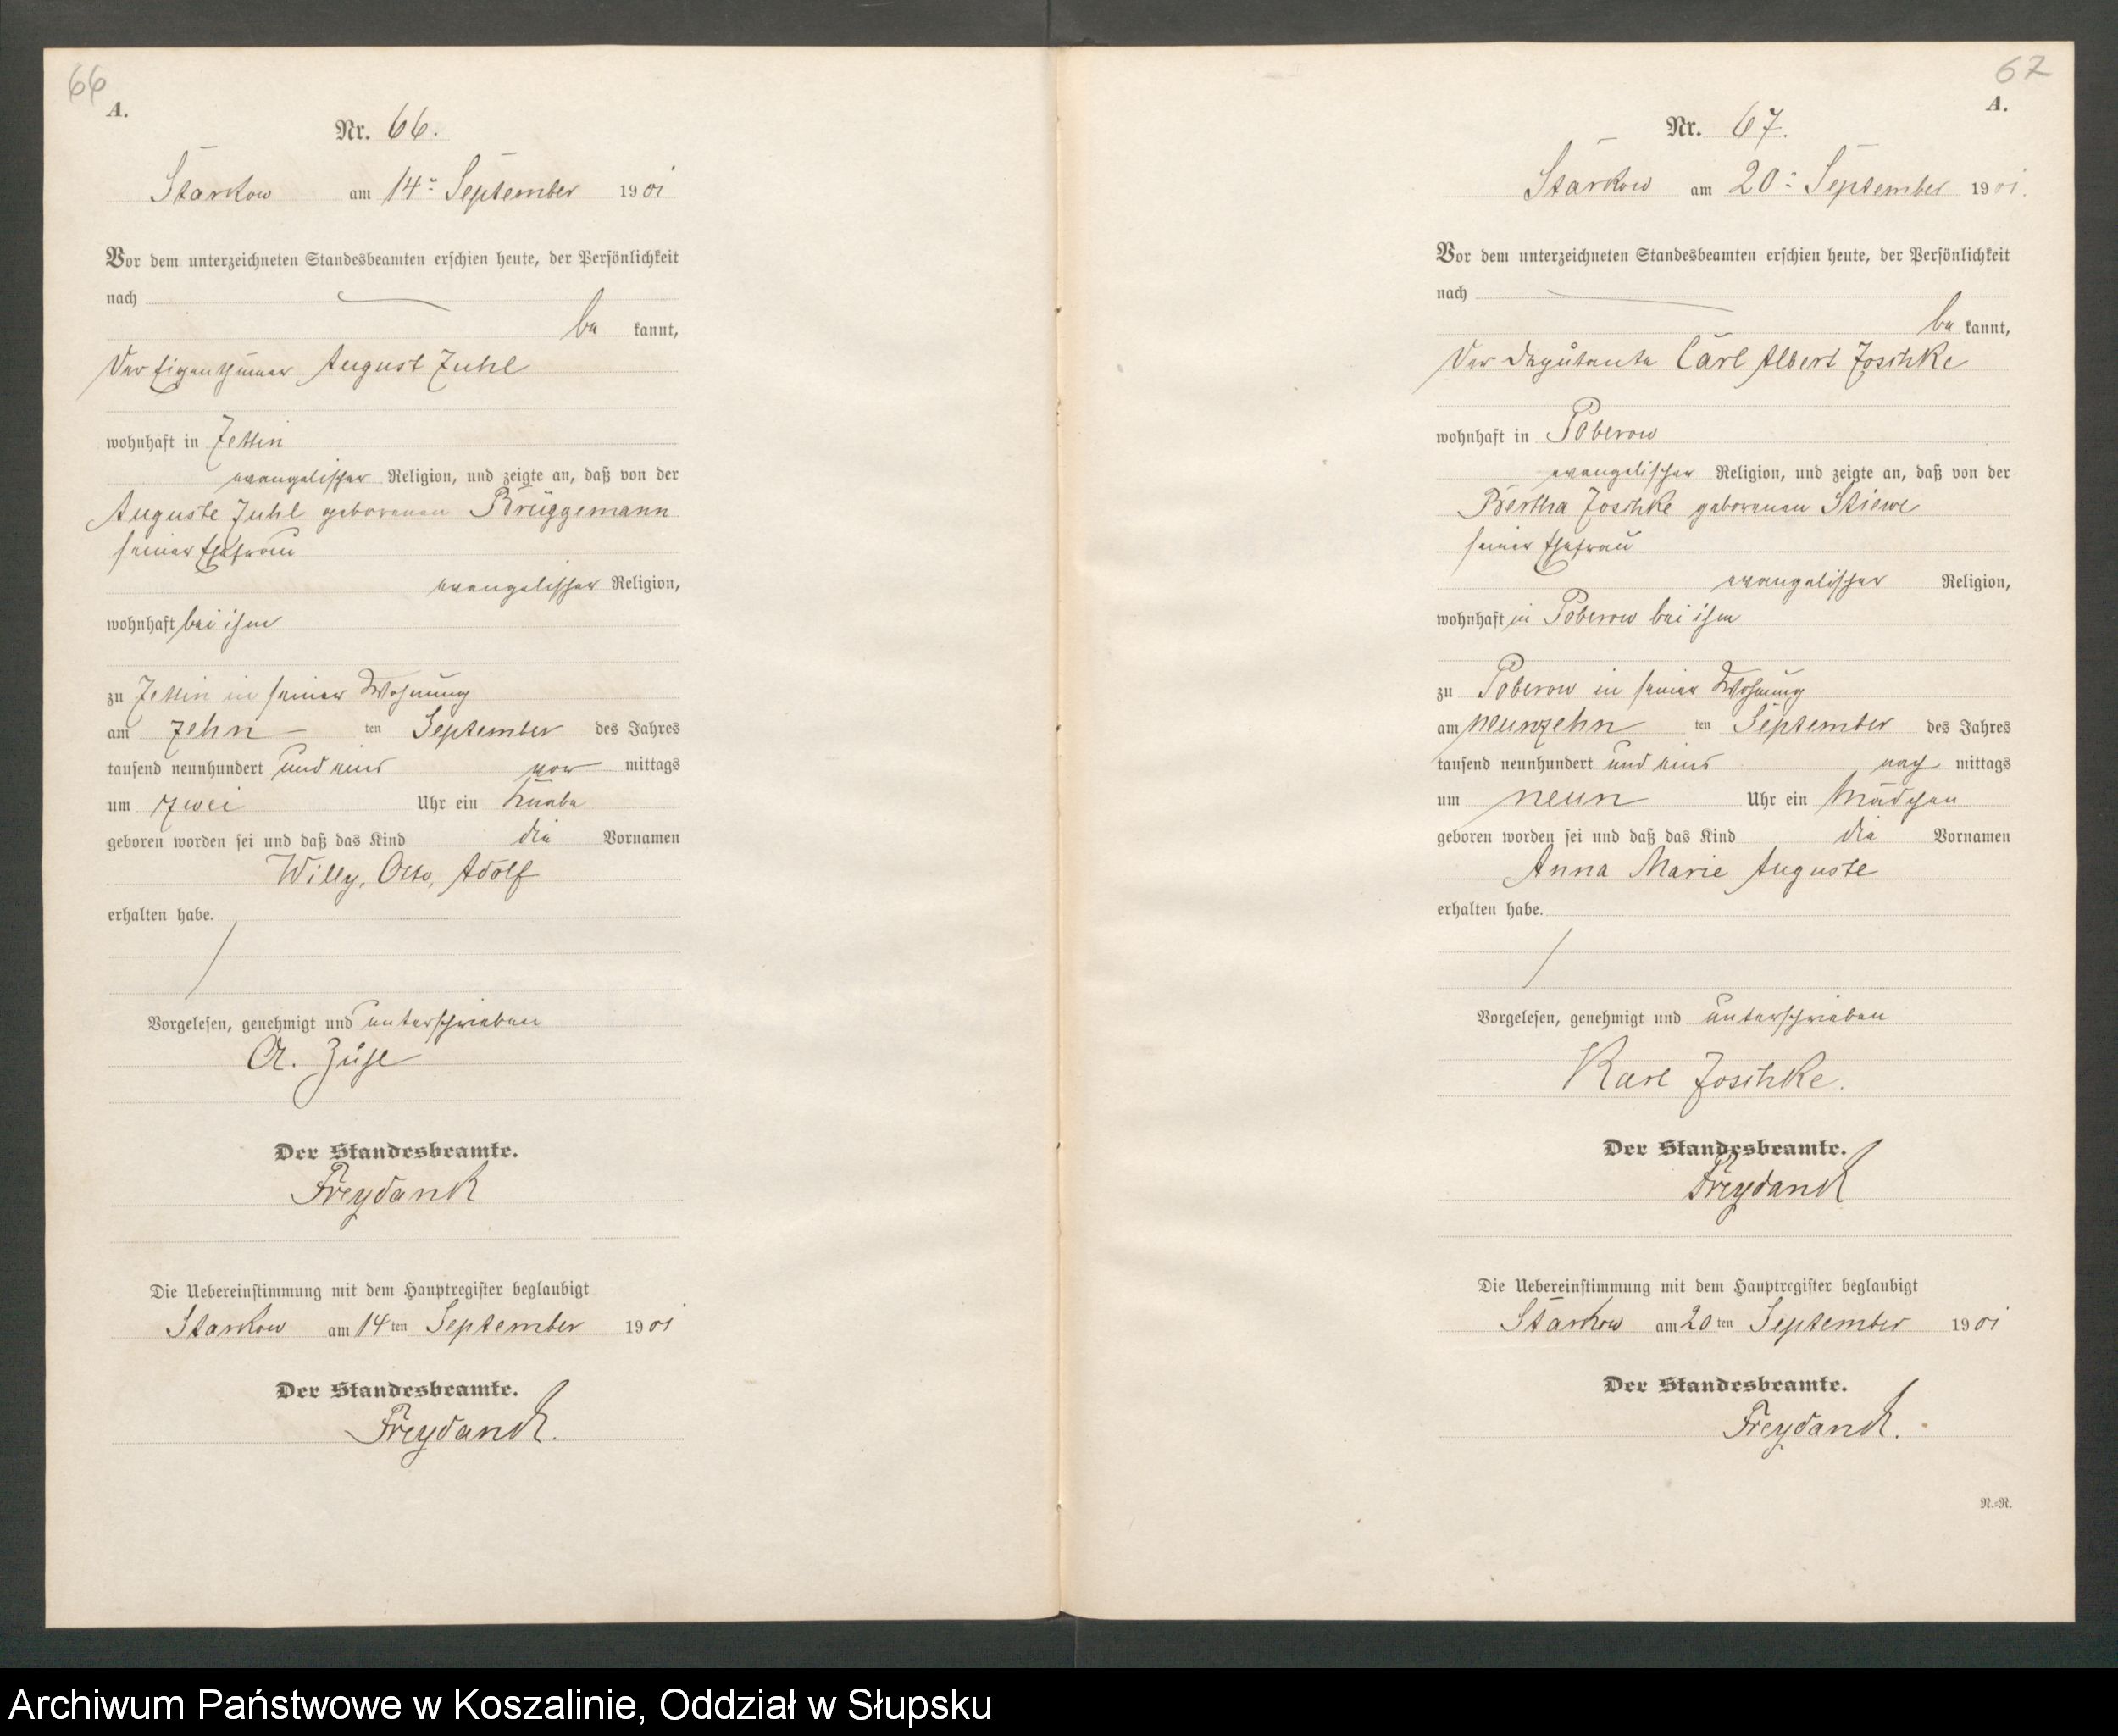 66
A.
Nr. 66.
Starkow am 14ten September 1901
Vor dem unterzeichneten Standesbeamten erschien heute, der Persönlichkeit
nach
be kannt,
der Eigenthümer August Juhl
wohnhaft in Zettin
evangelischer Religion, und zeigte an, daß von der
Auguste Juhl geborenen Brüggemann
seiner Ehefrau
evangelischer Religion,
wohnhaft bei ihm
zu Zettin in seiner Wohnung
am zehn ten September des Jahres
tausend neunhundert und eins vor mittags
um zwei Uhr ein Knabe
geboren worden sei und daß das Kind die Vornamen
Willy, Otto, Adolf
erhalten habe.
Vorgelesen, genehmigt und unterschrieben
A.
Der Standesbeamte.
Freydanck
Die Uebereinstimmung mit dem Hauptregister beglaubigt
Starkow am 14 ten September 1901
Der Standesbeamte.
Freydanck.
67
A.
Nr. 67.
Starkow am 20ten September 1901.
Vor dem unterzeichneten Standesbeamten erschien heute, der Persönlichkeit
nach
be kannt,
der Deputante Carl Albert Joschke
wohnhaft in Poberow
evangelischer Religion, und zeigte an, daß von der
Bertha Joschke geborenen Stiewe
seiner Ehefrau
evangelischer Religion,
wohnhaft in Poberow bei ihm
zu Poberow in seiner Wohnung
am neunzehn ten September des Jahres
tausend neunhundert und eins nach mittags
um neun Uhr ein Mädchen
geboren worden sei und daß das Kind die Vornamen
Anna Marie Auguste
erhalten habe.
Vorgelesen, genehmigt und unterschrieben
Karl Joschke.
Der Standesbeamte.
Freydanck
Die Uebereinstimmung mit dem Hauptregister beglaubigt
Starkow am 20 ten September 1901
Der Standesbeamte.
Freydanck.
N.=R.
Archiwum Państwowe w Koszalinie, Oddział w Słupsku